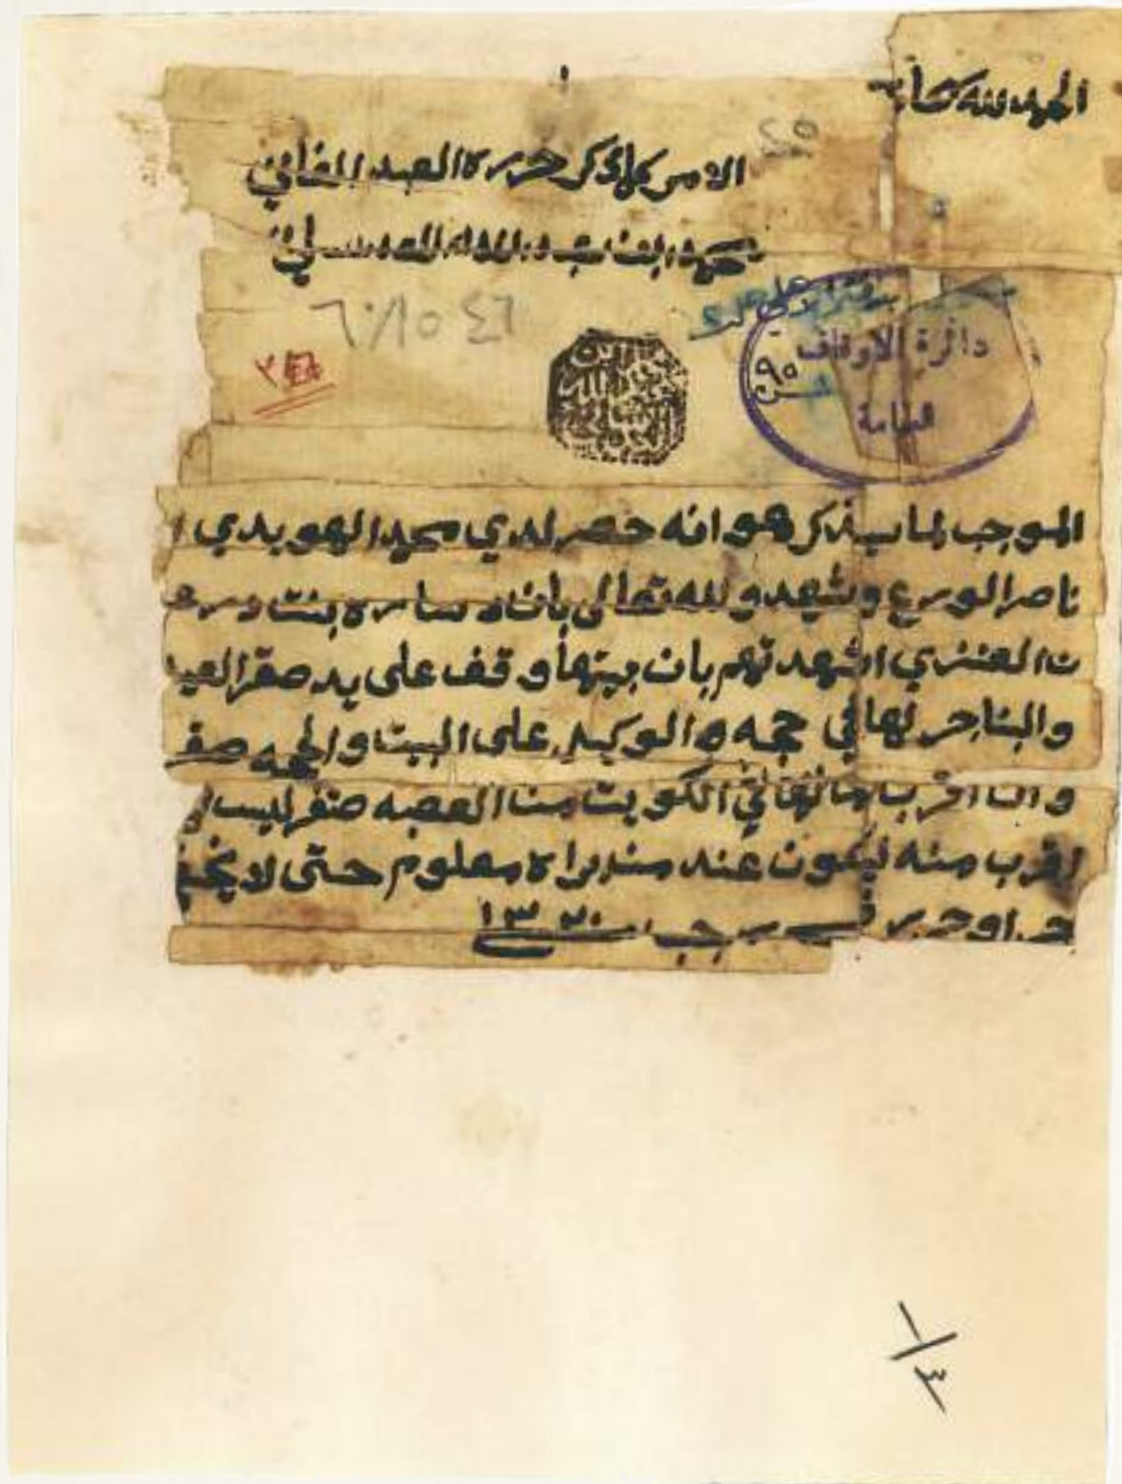 الحمد لله
الامر كما ذكر حرره العبد الفاني
محمد ابن عبد الله العدساني
٦٠/١٥ ٤٦
دائرة الاوقاف
العامة
٩٥
الموجب لما سيذكر هو انه حضر لدي محمد الهويدي
ناصر الوريع وشهدو لله تعالى بان ساره بنت
العنزي اشهدتهم بان بيتها وقف على يد صقر
والبناجر لها في حجه والوكيل على البيت والحجه صقر
وانا اقرب مالها في الكويت من العصبه صقر ليس
اقرب منه ليكون عند من يراه معلوم حتى لا يخفى
جرا وحرر في رجب سنة ١٣٢٠
١/٣